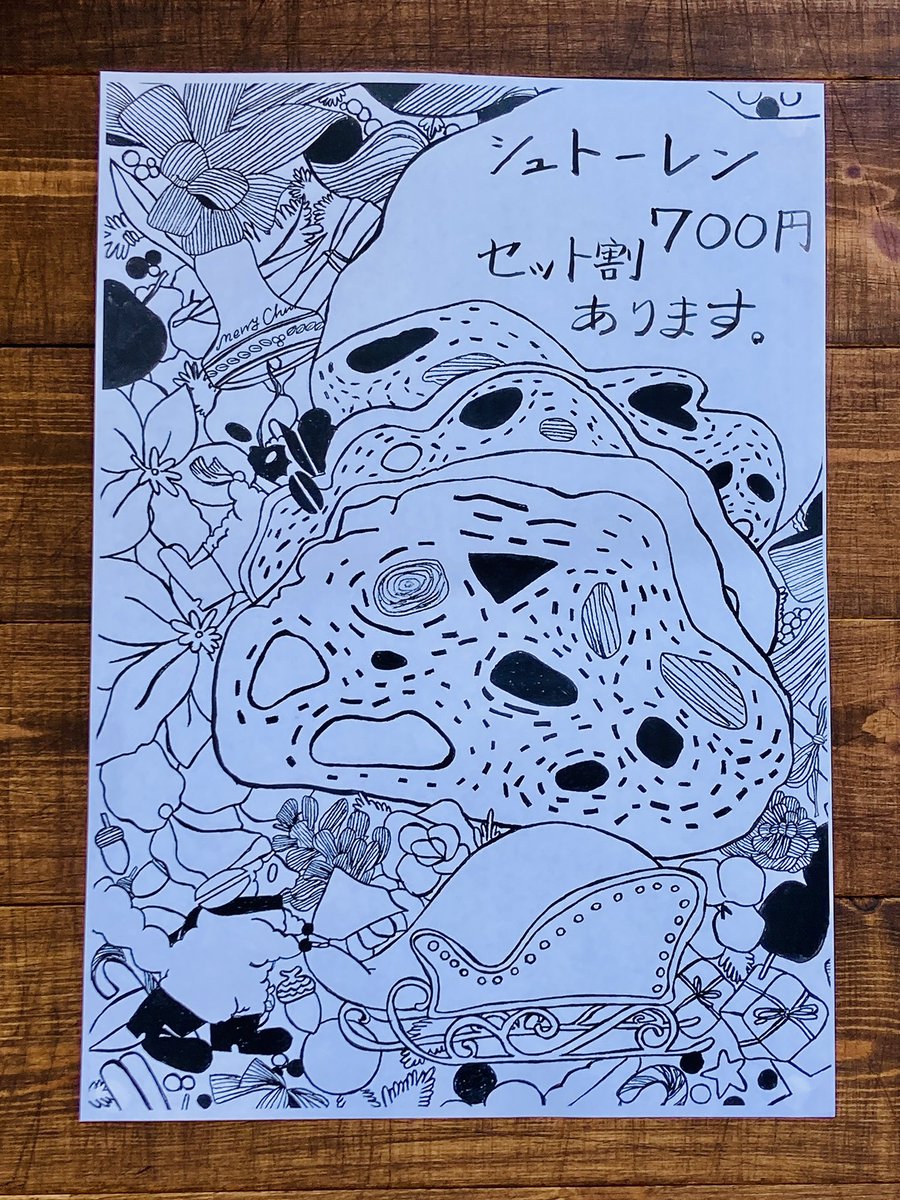 シュトーレン
700円
セット割
あります。
Merry Ch